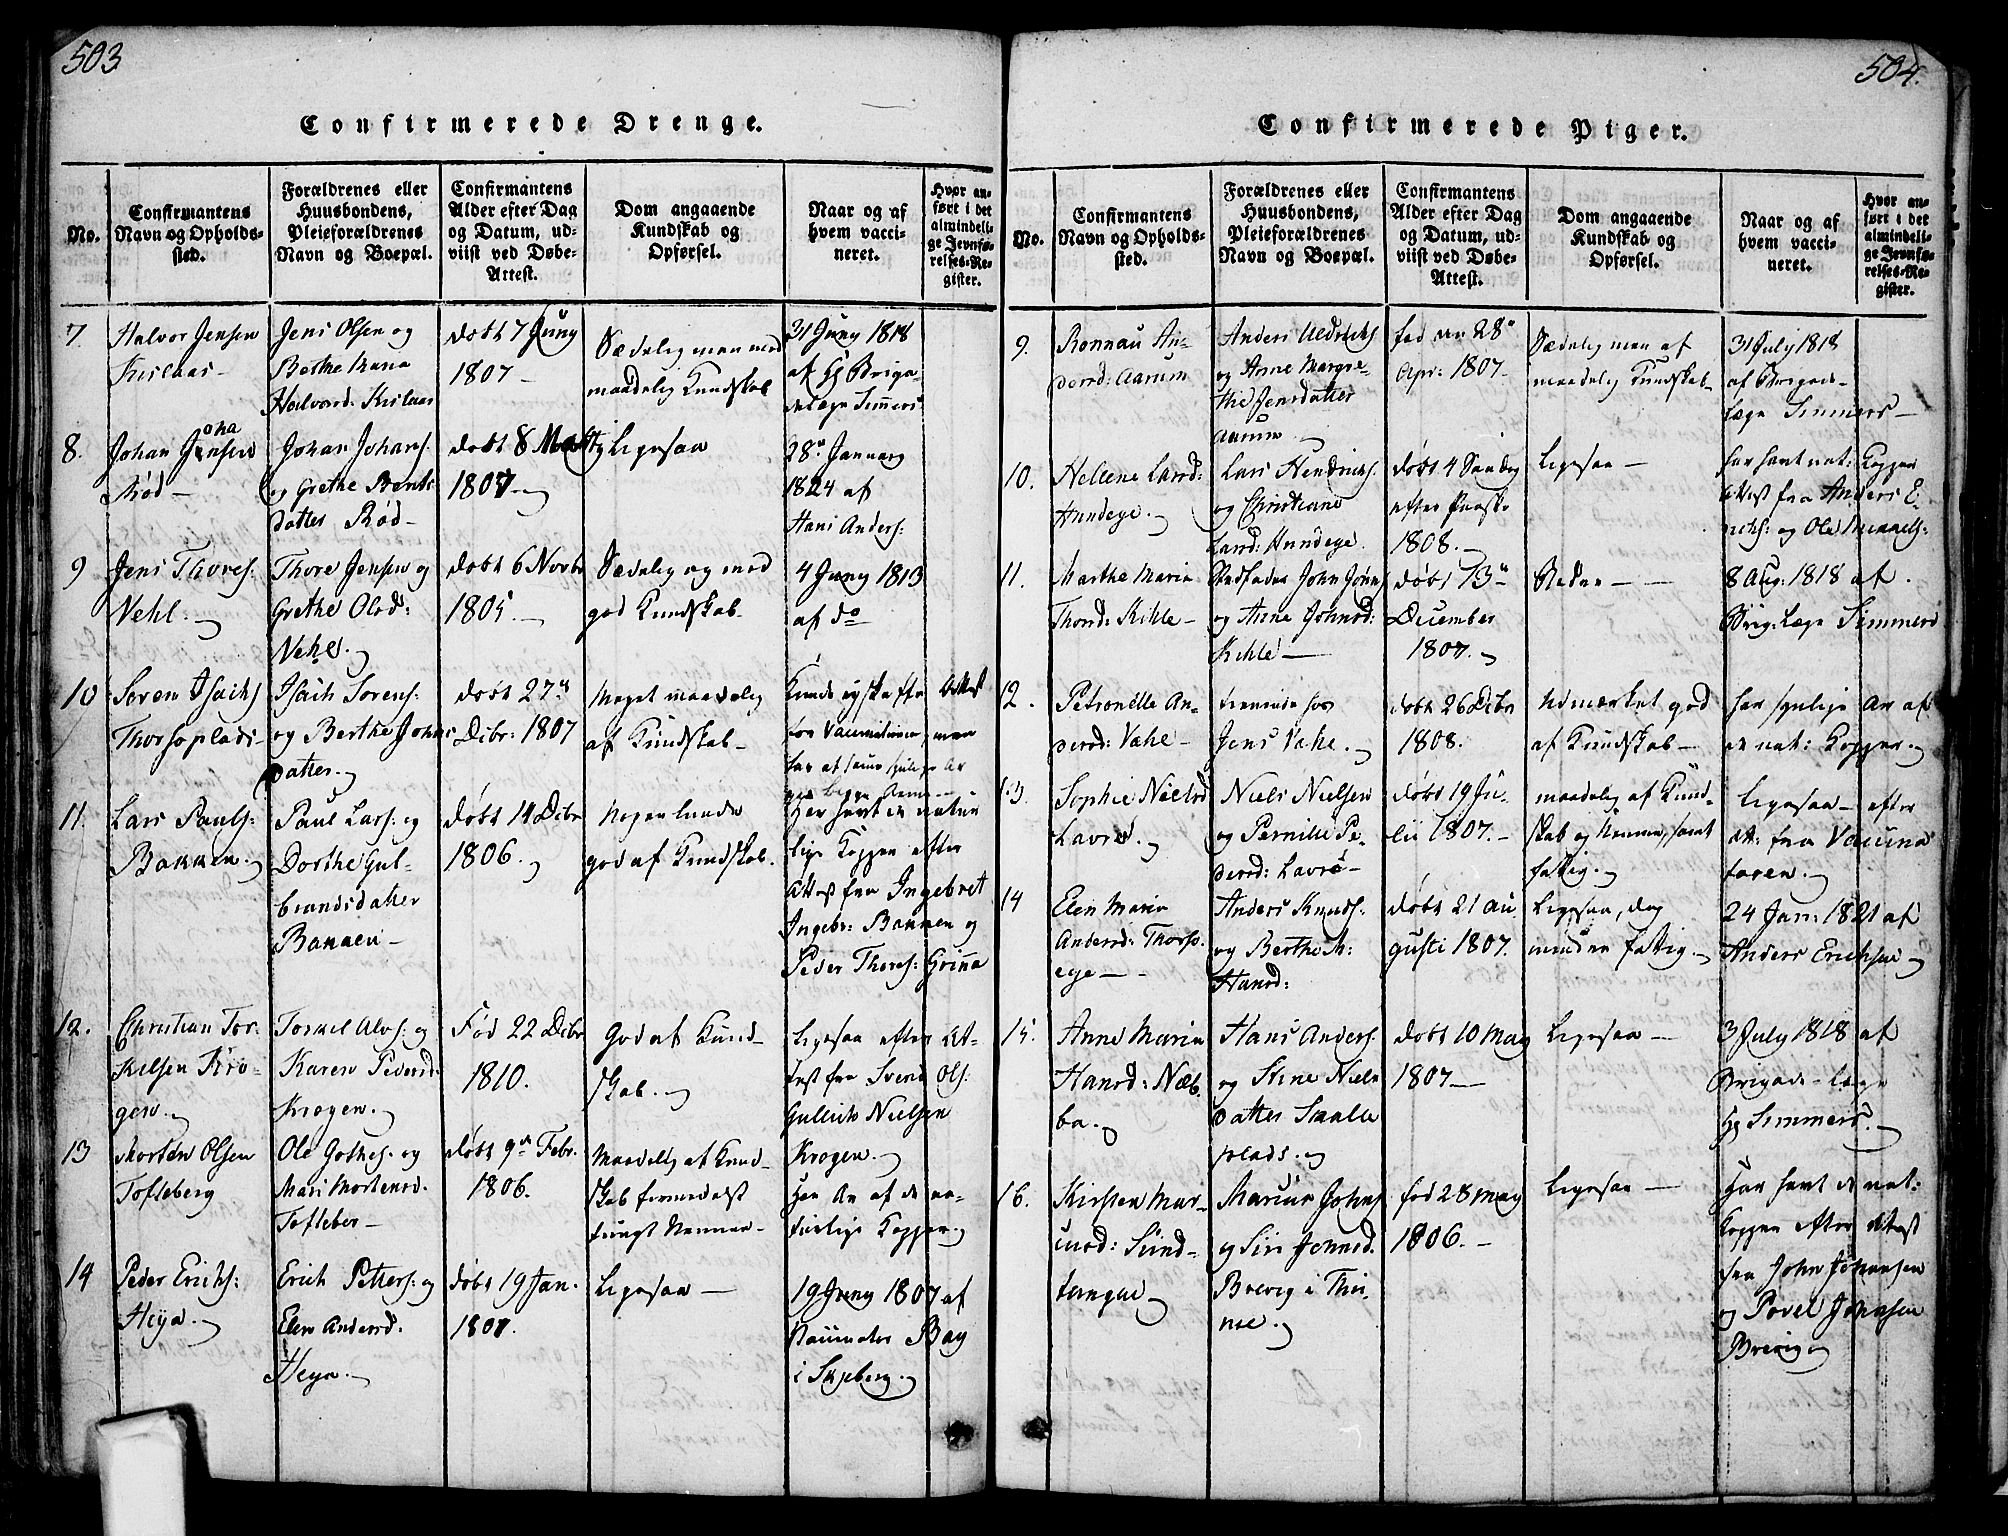 503
Confirmerede Drenge.
No.
Confirmantens
Navn og Opholds-
sted.
Forældrenes eller
Huusbondens,
Pleieforældrenes
Navn og Boepæl.
Confirmantens
Alder efter Dag
og Datum, ud-
viist ved Døbe-
Attest.
Dom angaaende
Kundskab og
Opførsel.
Naar og af
hvem vacci-
neret.
Hvor an-
ført i det
almindeli-
ge Jevnfø-
relses-Re-
gister.
7
Halvor Jensen
Kislaas
Jens Olsen og
Berthe Maria
Halvord: Kislaas
døbt 7 Juny
1807
Sædelig men med
maadelig Kundskab
31 Juny 1818
af Hr Briga-
delæge Simmers
8.
Johan Johansen
Rød
Johan Johans:
og Grethe Bents
datter Rød
døbt 8 Marty
1807
Ligesaa
28 Januar
1824 af
Hans Anders:
9
Jens Thores:
Vehl.
Thore Jensen og
Grethe Olsd:
Vehl.
døbt 6 Novbr
1805.
Sædelig og med
god Kundskab
4 Juny 1813
af do
10
Søren Isachs
Thorsøplads
Isach Sørens:
og Berthe Johns
datter.
døbt 27
Decbr: 1807
Meget maadelig
af Kundskab
11.
Lars Pauls:
Bakken.
Paul Lars: og
Dorthe Gul-
brandsdatter
Bakken
døbt 14 Decbr
1806.
Nogenlunde
god af Kundskab.
Har havt de natur
lige Kopper efter
Attest fra Ingebret
Ingebr: Bakken og
Peder Thores: Grina
12.
Christian Tor-
kelsen Kro-
gen.
Torkel Alvs: og
Karen Pedersd:
Krogen.
Fød 22 Decbr
1810.
God af Kund-
skab.
Ligesaa efter At-
test fra Svend Ols:
Gullich Nielsen
Krogen.
13
Morten Olsen
Tofteberg
Ole Gothes: og
Mari Mortensd.
Tofteber
døbt 9 Febr.
1806.
Maadelig af Kund-
skab formedelst
tungt Nemme
Har Ar af de na-
turlige Kopper
14
Peder Erichs:
Heya.
Erich Petters: og
Elen Andersd.
Heya.
døbt 19 Jan.
1807.
Ligesaa
19 Juny 1807 af
Bay
i Skjeberg.
504.
Confirmerede Piger.
No.
Confirmantens
Navn og Opholds-
sted.
Forældrenes eller
Huusbondens,
Pleieforældrenes
Navn og Boepæl.
Confirmantens
Alder efter Dag
og Datum, ud-
viist ved Døbe-
Attest.
Dom angaaende
Kundskab og
Opførsel.
Naar og af
hvem vacci-
neret.
Hvor an-
ført i det
almindeli-
ge Jevnfø-
relses-Re-
gister.
9.
Ronnau An-
dersd: Aarum
Anders Uldrichs
og Anne Margre-
the Jensdatter
Aarum
fød 28
Apr: 1807.
Sædelig men af
maadelig Kundskab
31 July 1818
af Brigade-
læge Simmers
10.
Hellene Larsd:
Hundege.
Lars Hendrichs.
og Christiane
Larsd: Hundege.
døbt 4 Søndag
efter Paaske
1808.
Ligesaa
har havt nat: Kopper
Attest fra Anders E-
richs: og Ole
11.
Marthe Maria
Thorsd: Kihle
Stedfader John Johns
og Anne Johnsd:
Kihle
døbt 13
December
1807.
8 Aug: 1818 af
Brig: Læge Simmers
12.
Petronelle An-
dersd: Vahe
tjenende hos
Jens Vahe.
døbt 26 Decbr
1808.
Udmærket god
af Kundskab
har synlige Ar af
de nat: Kopper.
13.
Sophie Nielsd
Lavrø.
Niels Nielsen
og Pernille Pe-
dersd: Lavrø
døbt 19 Ju-
lii 1807.
maadelig af Kund-
skab og Nemme, samt
fattig.
Ligesaa efter
Att: fra Vaccina
toren.
14
Elen Maria
Andersd: Thorsø-
ege
Anders Knuds:
og Berthe M:
Hansd:
døbt 21 Au
gusti 1807.
Ligesaa, dog
mindre fattig.
24 Jan: 1821 af
Anders Erichsen
15.
Anne Maria
Hansd: Næb
ba.
Hans Anders:
og Stine Niels
datter Saalle
plads.
døbt 10 May
1807
Ligesaa
3 July 1818 af
Brigade-Læge
Hr Simmers.
16.
Kirsten Mar-
cusd: Sund-
tangen
Marcus Johns
og Siri Johnsd.
Brevig i Thi-
nne.
fød 28 May
1806.
Ligesaa
Har havt de nat:
Kopper efter Attest
fra John Johansen
og Povel Johnsen
Brevig